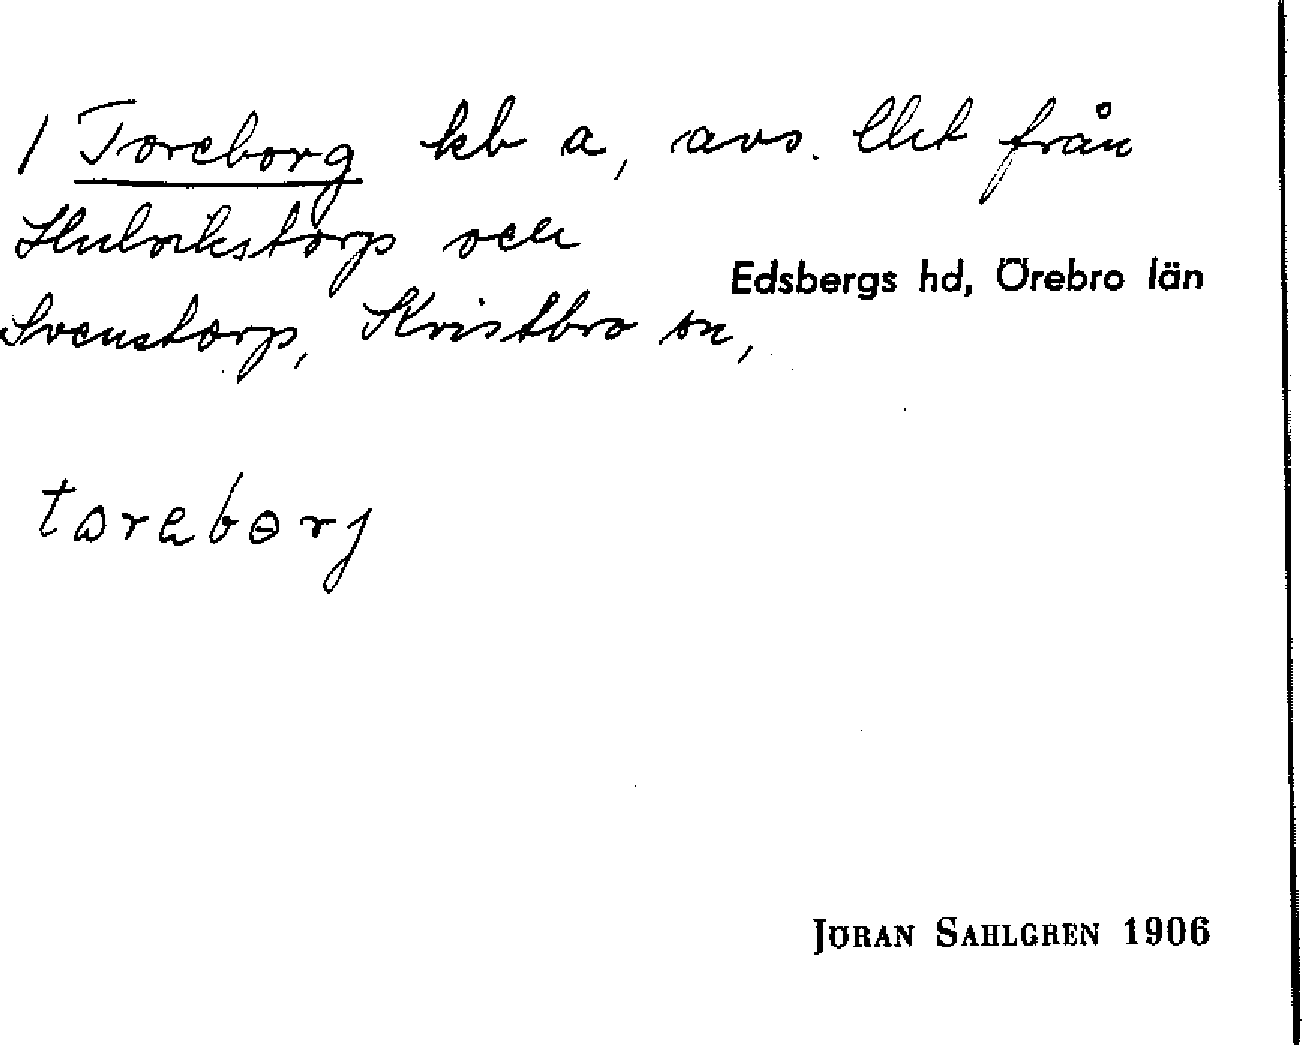 1 Toreborg kb a, avs. Ulct från
Hulrikstorp och
Svenstorp, Kristbro sn,
Edsbergs hd, Örebro län
toreborj
JÖRAN SAHLGREN 1906